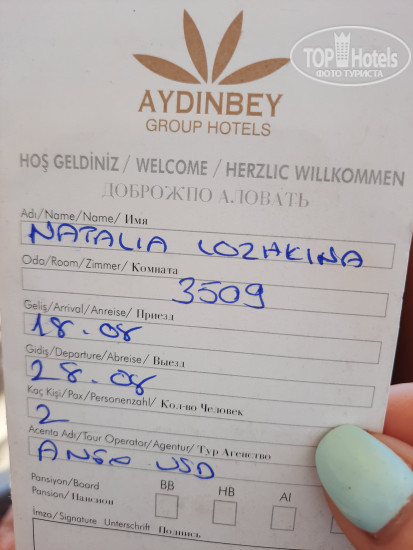 TOPHotels
ФОТО ТУРИСТА
AYDINBEY
GROUP HOTELS
HOŞ GELDİNİZ / WELCOME / HERZLIC WILLKOMMEN
ДОБРОЖПО АЛОВАТЬ
Adı/Name/Name/ Имя
NATALIA LOZHKINA
Oda/Room/Zimmer/ Комната
3509
Geliş/Arrival/Anreise/ Приезд
18.08
Gidiş/Departure/Abreise/ Выезд
28.08
Kaç Kişi/Pax/Personenzahl/ Кол-во Человек
2
Acenta Adı/Tour Operator/Agentur/ Тур Агенство
USD
Pansiyon/Board BB HB AI
Pansion/ Пансион
İmza/Signature Unterschrift Подпись